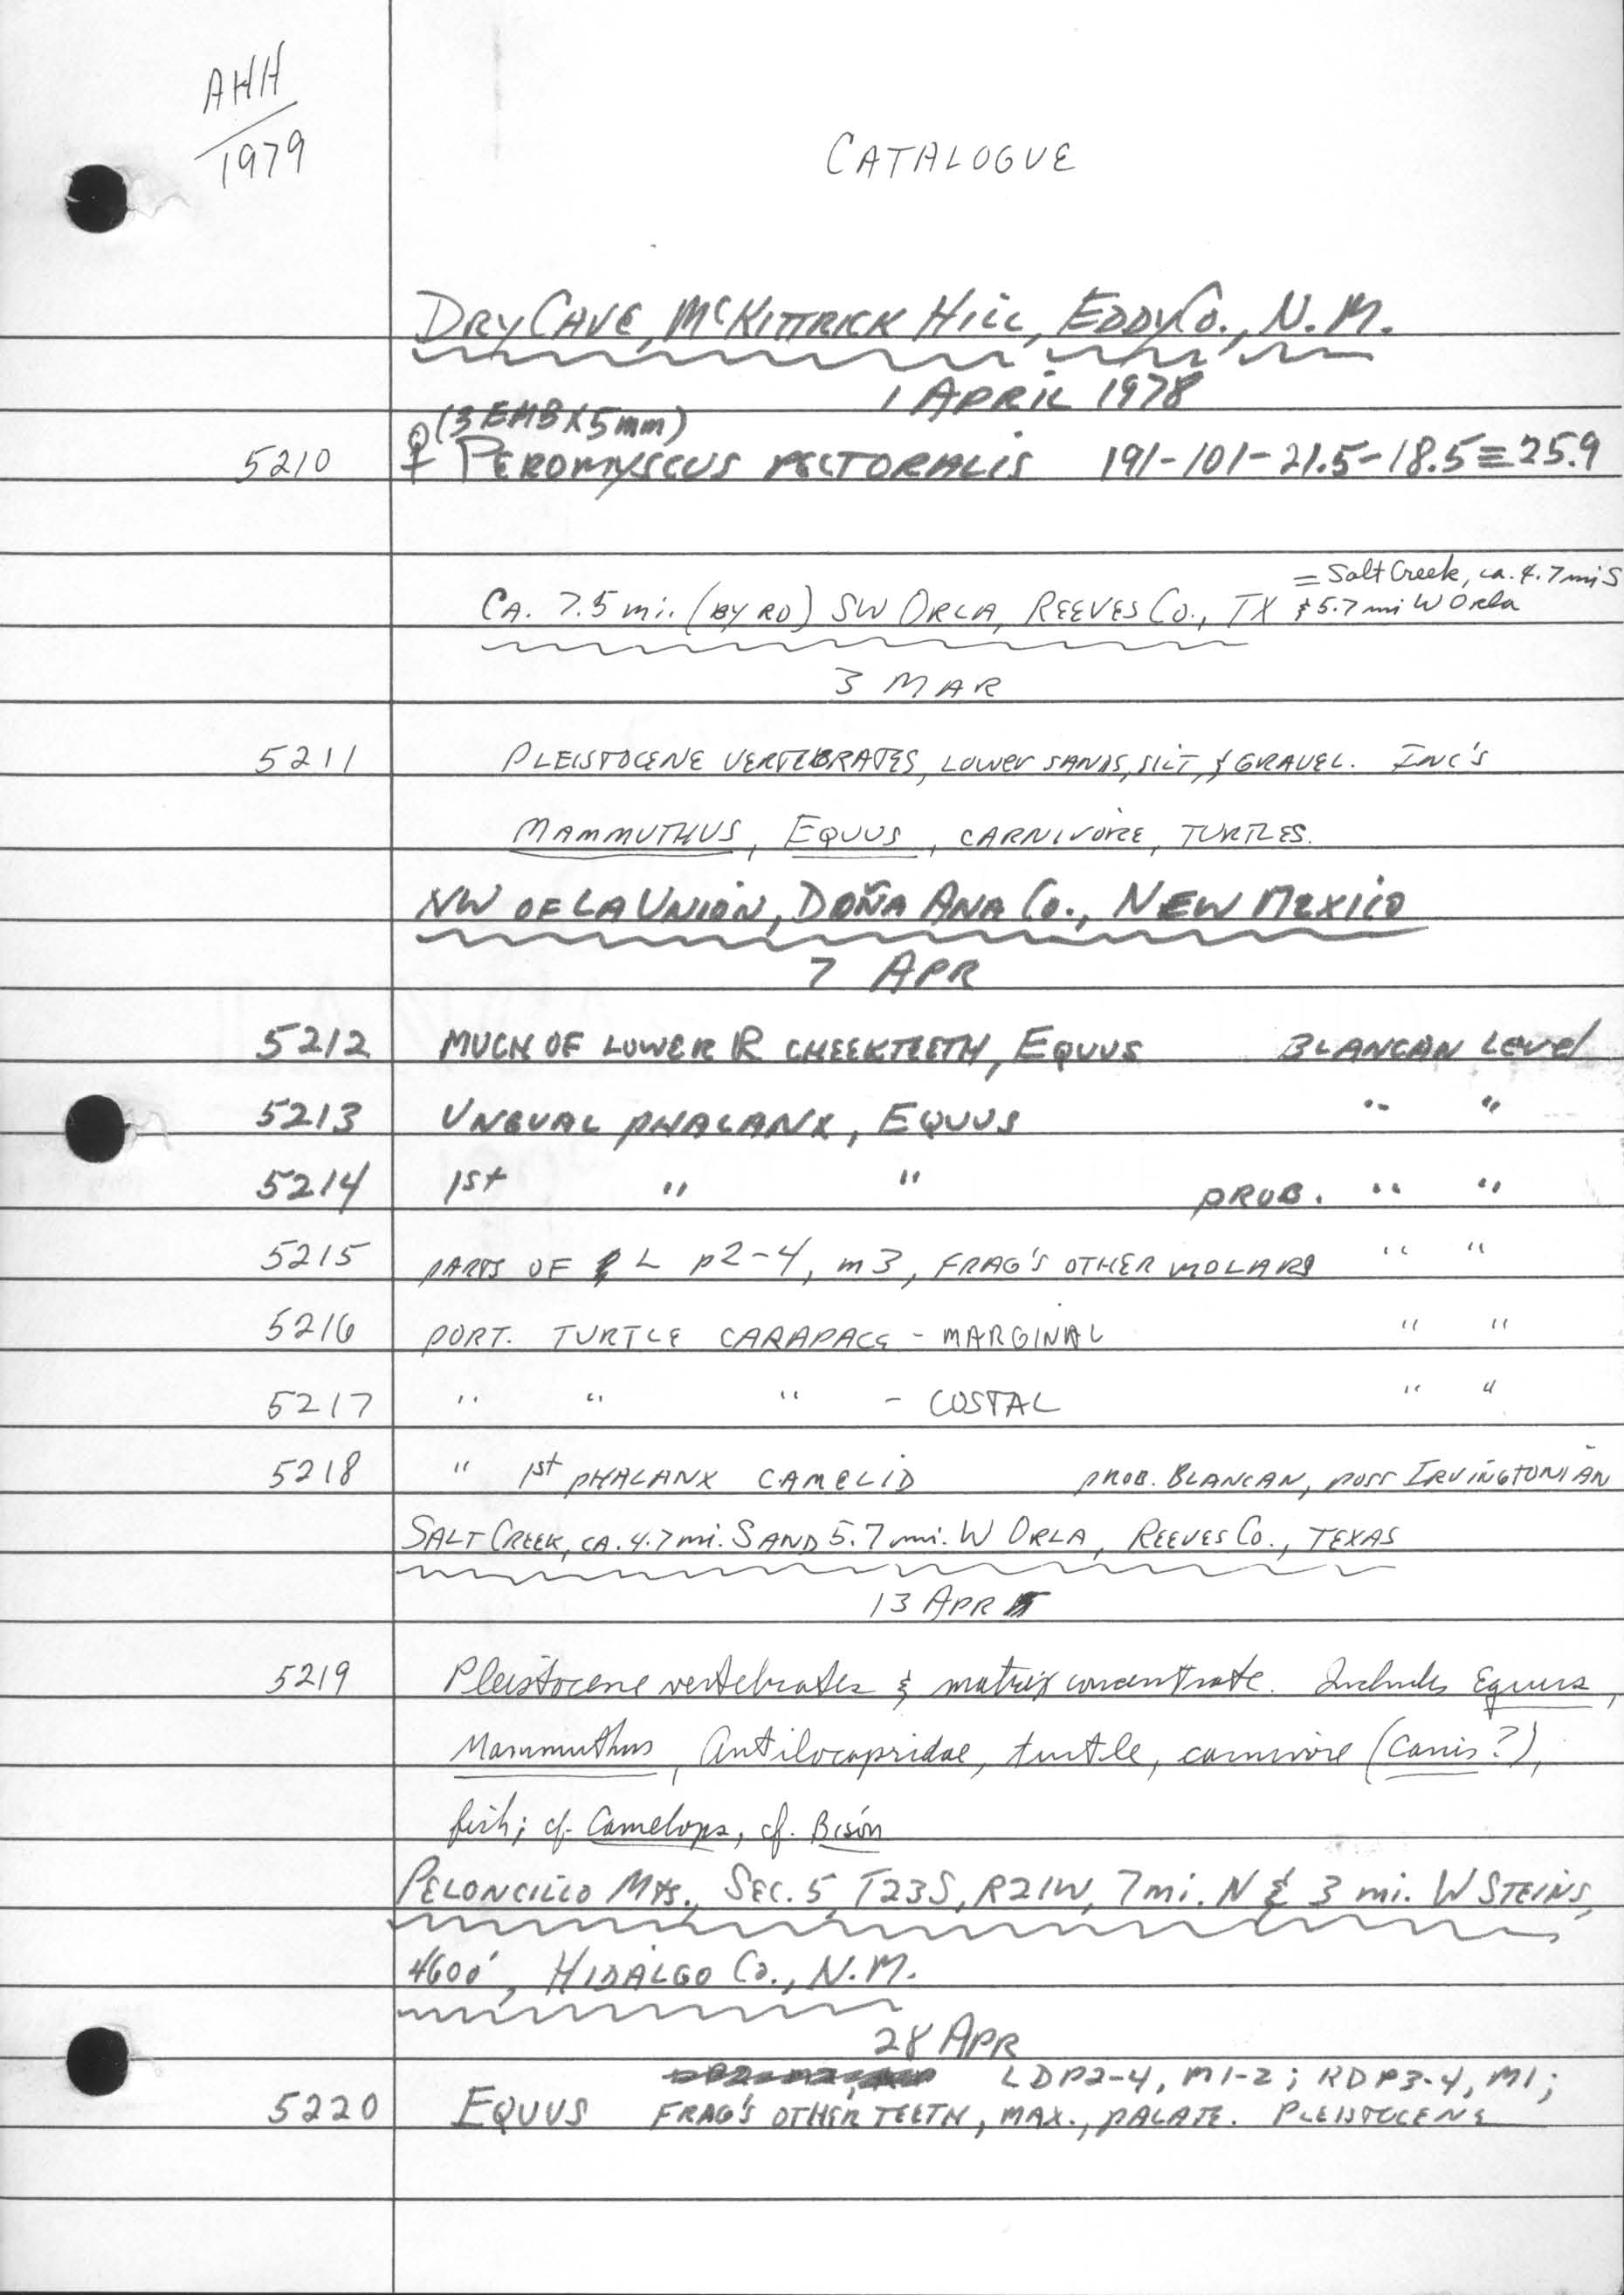 AHH
1979
CATALOGUE
DRY CAVE, McKITTRICK HILL, EDDY CO., N.M.
1 APRIL 1978
(3 EMB X 5mm)
5210 ♀ PEROMYSCUS PECTORALIS 191-101-21.5-18.5≡25.9
= Salt Creek, ca. 4.7 mi S
CA. 7.5 mi. (BY RD) SW ORLA, REEVES CO., TX & 5.7 mi W Orla
3 MAR
5211 PLEISTOCENE VERTEBRATES, LOWER SANDS, SILT, & GRAVEL. INC'S
MAMMUTHUS, EQUUS, CARNIVORE, TURTLES.
NW OF LA UNION, DOÑA ANA CO., NEW MEXICO
7 APR
5212 MUCH OF LOWER R CHEEKTEETH, EQUUS BLANCAN LEVEL
5213 UNGUAL PHALANX, EQUUS " "
5214 1st " " PROB. " "
5215 PARTS OF L p2-4, m3, FRAG'S OTHER MOLARS " "
5216 PORT. TURTLE CARAPACE - MARGINAL " "
5217 " " " - COSTAL " "
5218 " 1st PHALANX CAMELID PROB. BLANCAN, POSS IRVINGTONIAN
SALT CREEK, CA. 4.7 mi. S AND 5.7 mi. W ORLA, REEVES CO., TEXAS
13 APR
5219 Pleistocene vertebrates & matrix concentrate. Includes Equus,
Mammuthus, Antilocapridae, turtle, carnivore (Canis?),
fish; cf. Camelops, cf. Bison
PELONCILLO MTS., SEC. 5, T23S, R21W, 7 mi. N & 3 mi. W STEINS,
4600', HIDALGO CO., N.M.
28 APR
LDP2-4, M1-2; RDP3-4, M1;
5220 EQUUS FRAG'S OTHER TEETH, MAX., PALATE. PLEISTOCENE